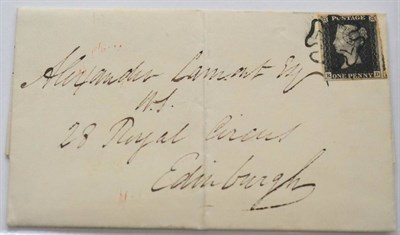 POSTAGE
ONE PENNY
Alexander Lamont Esq
W.S.
28 Royal Circus
Edinburgh